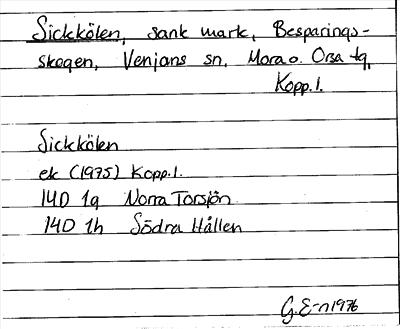 Sickkölen, sank mark, Besparings-
skogen, Venjans sn, Mora o. Orsa tg,
Kopp.l.
Sickkölen
ek (1975) Kopp.l.
14D 1g Norra Torsjön
14D 1h Södra Hållen
G.E-n 1976